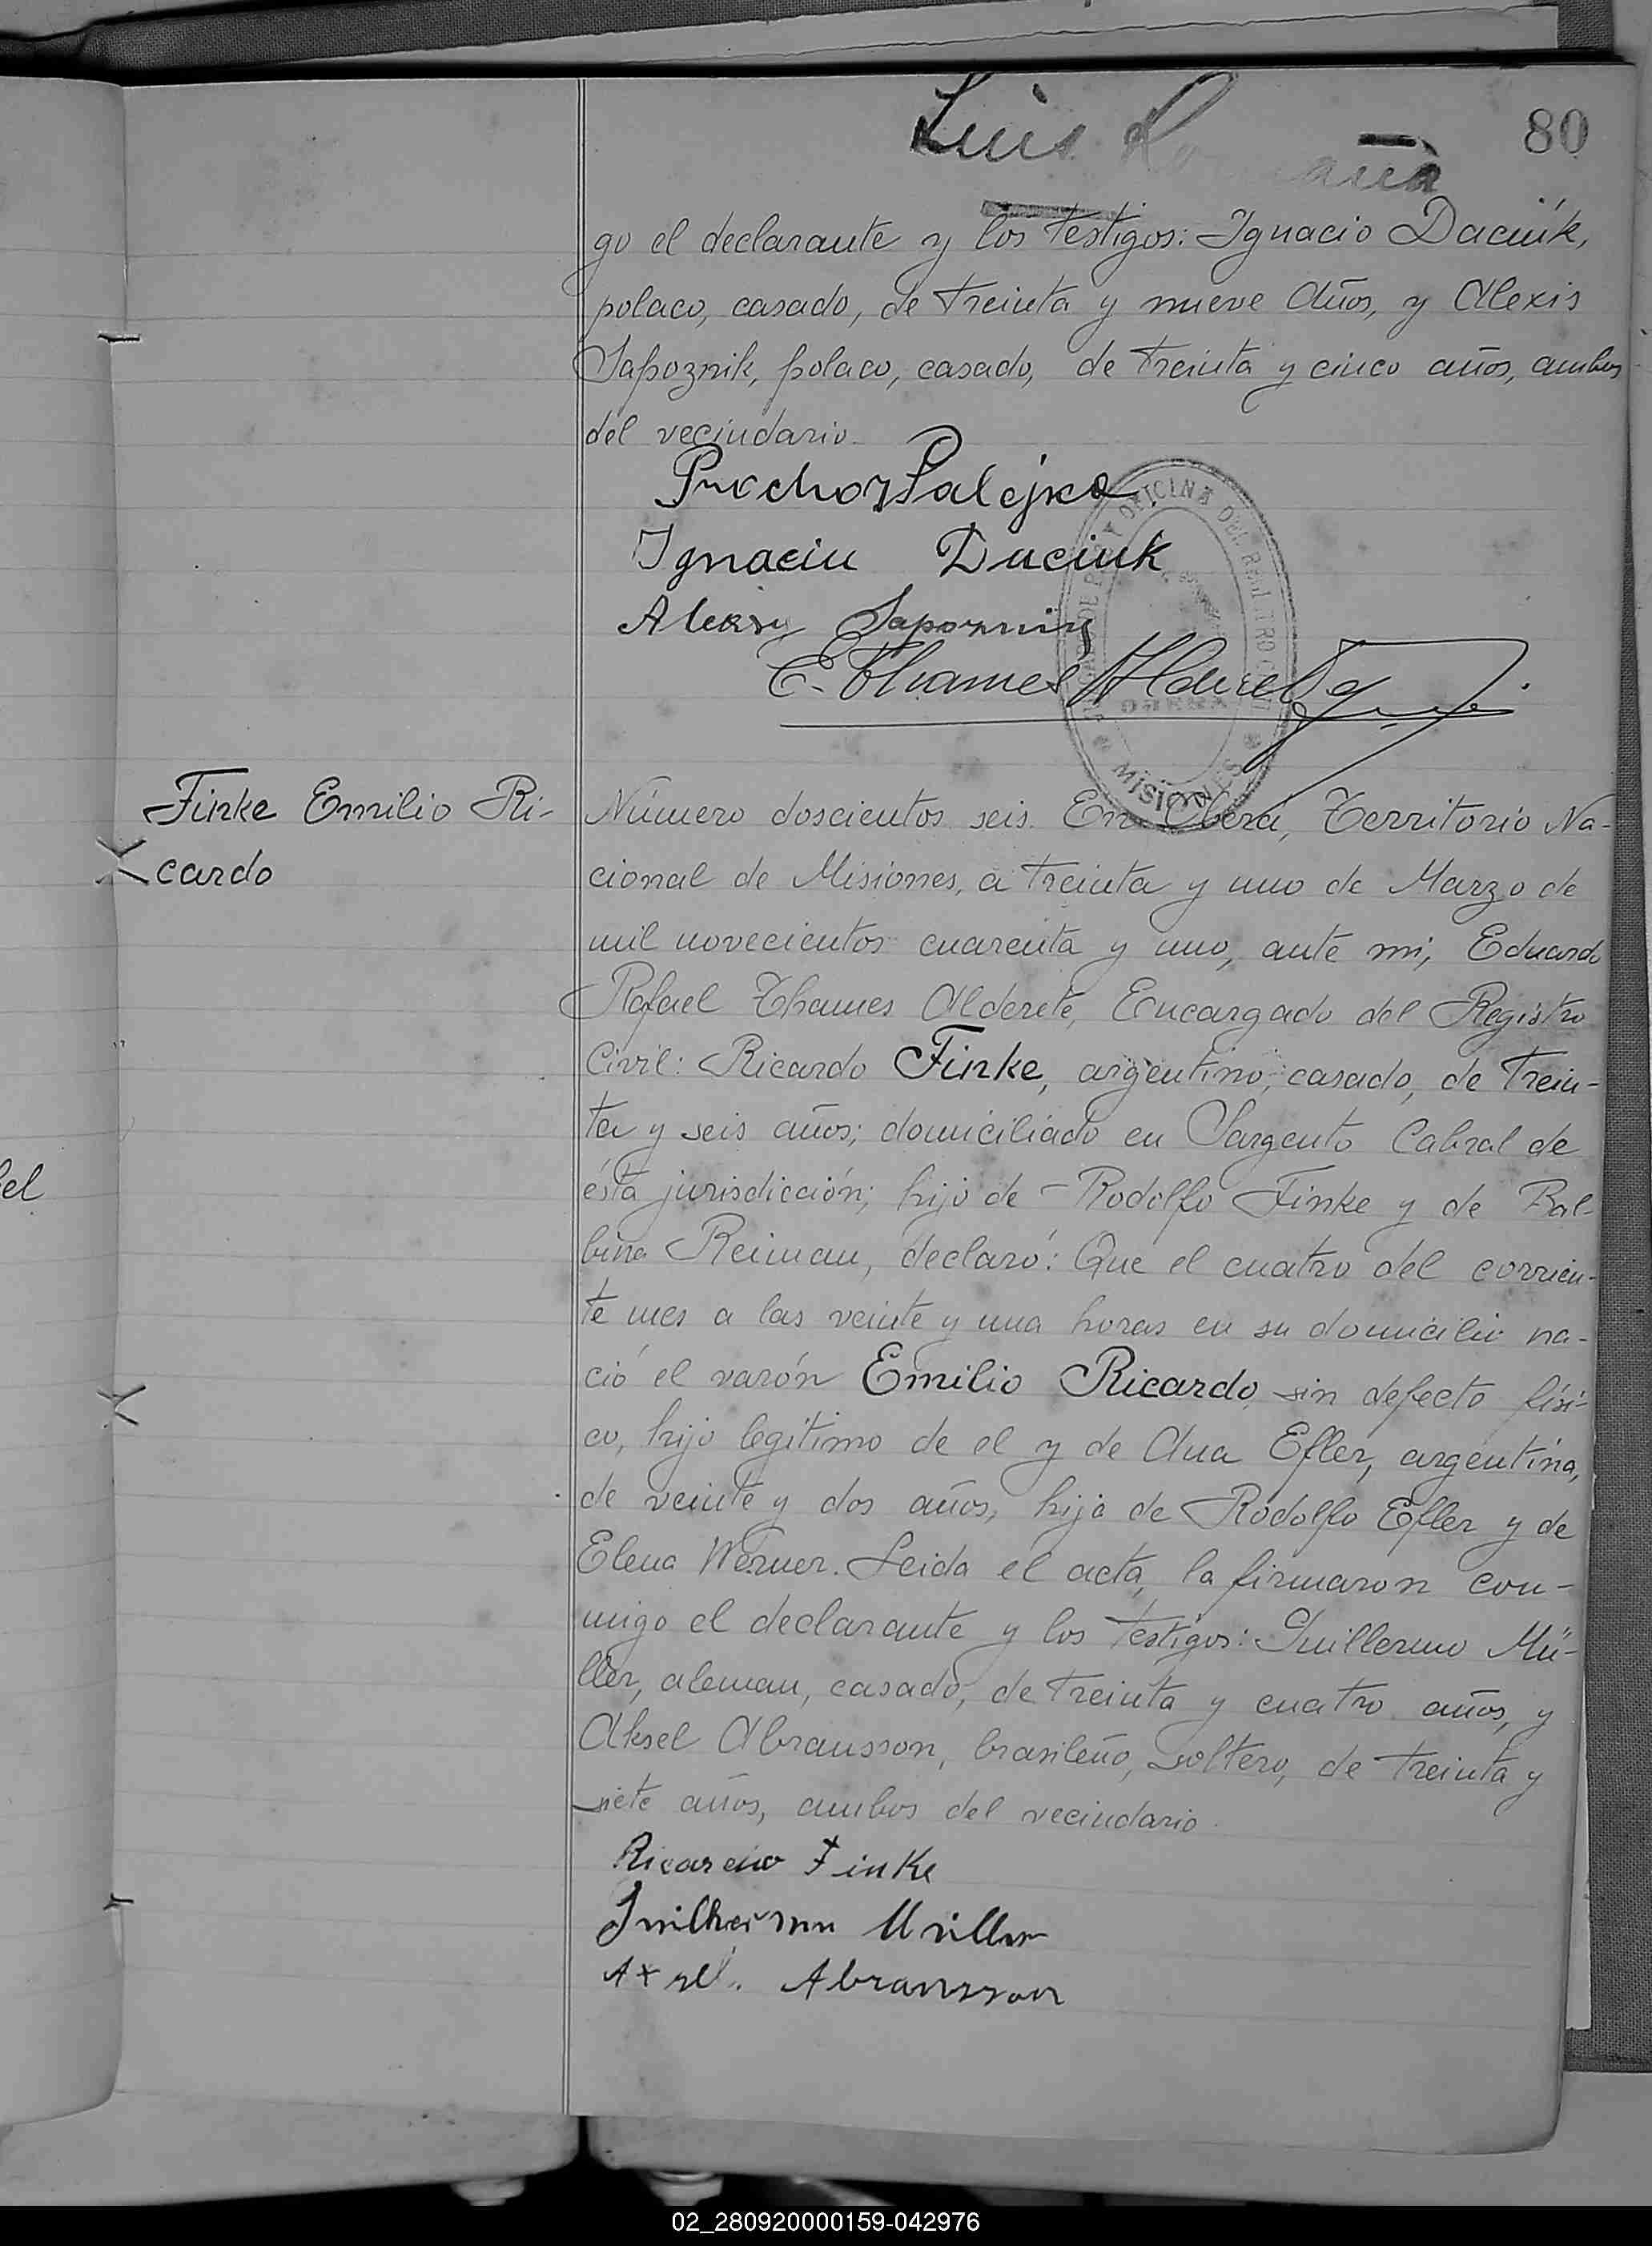 80
Luis
go el declarante y los testigos: Ignacio Daciuk,
polaco, casado, de treinta y nueve años, y Alexis
Sapoznik, polaco, casado, de treinta y cinco años, ambos
del vecindario.
Ignaciu Daciuk
E. Thames Alderete
OFICINA DEL REGISTRO CIVIL
MISIONES
Finke Emilio Ri-
cardo
Número doscientos seis. En Oberá, Territorio Na-
cional de Misiones, a treinta y uno de Marzo de
mil novecientos cuarenta y uno, ante mi, Eduardo
Rafael Thames Alderete, Encargado del Registro
Civil: Ricardo Finke, argentino, casado, de trein-
ta y seis años; domiciliado en Sargento Cabral de
ésta jurisdicción; hijo de Rodolfo Finke y de Bal-
bina Reiman, declaró: Que el cuatro del corrien-
te mes a las veinte y una horas en su domicilio na-
ció el varón Emilio Ricardo, sin defecto físi-
co, hijo legítimo de el y de Ana Efler, argentina,
de veinte y dos años, hija de Rodolfo Efler y de
Elena Werner. Leida el acta, la firmaron con-
migo el declarante y los testigos: Guillermo Mü-
ller, aleman, casado, de treinta y cuatro años, y
Aksel Abransson, brasileño, soltero, de treinta y
siete años, ambos del vecindario.
Ricardo Finke
Guilhermu Müller
Axel. Abransson
el
02_280920000159-042976